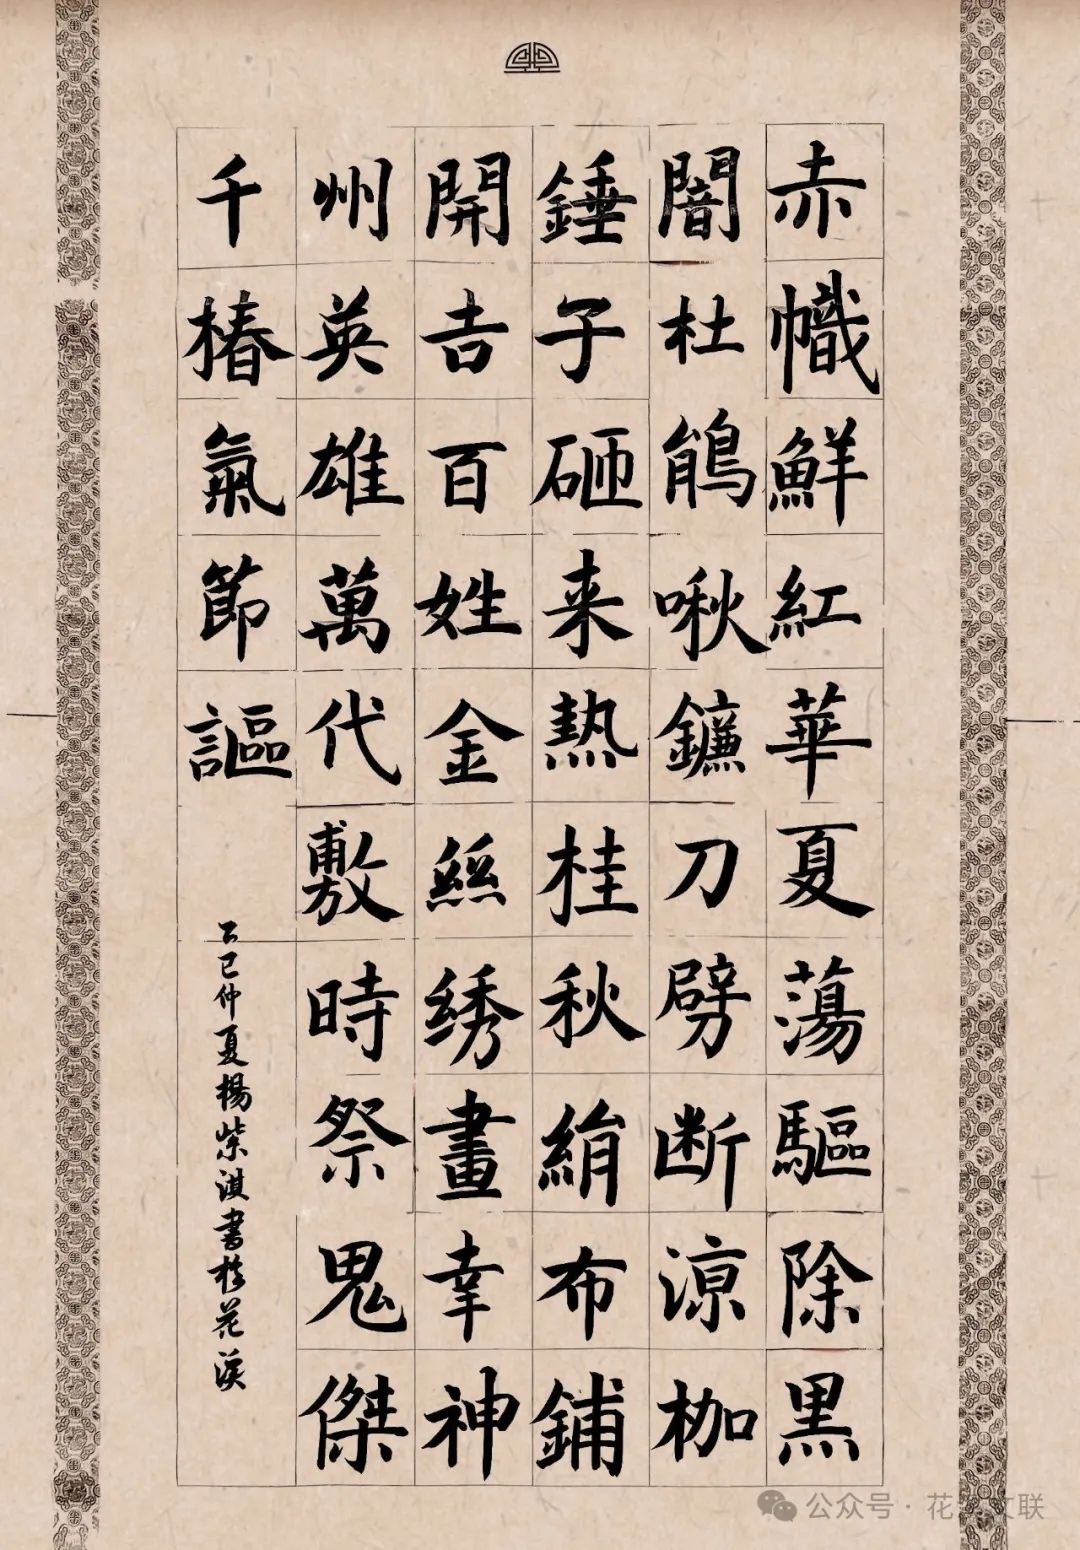 赤幟鮮紅華夏蕩驅除黑
闇杜鵑啾鐮刀劈断涼枷
錘子砸来热桂秋絹布鋪
開吉百姓金絲绣畫幸神
州英雄萬代敷時祭鬼傑
千椿氣節謳
乙巳仲夏楊紫淇書於花溪
公众号·花溪文联